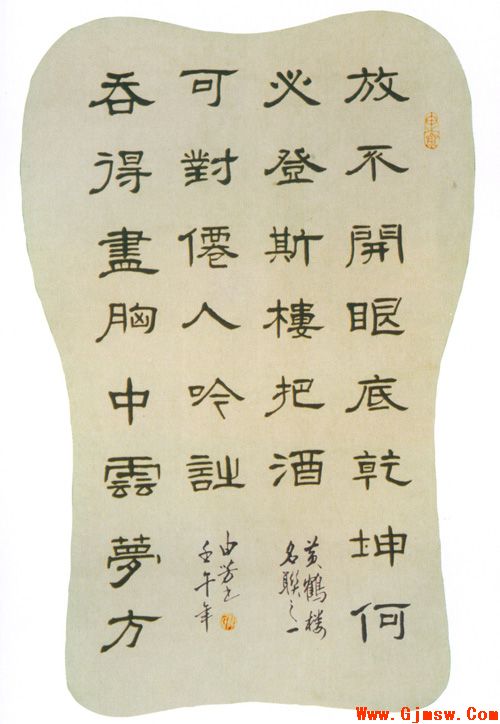 放不開眼底乾坤何
必登斯樓把酒
黄鶴楼
名聯之一
吞得盡胸中雲夢方
可對僊人吟詩
壬午年
Www.Gjmsw.Com